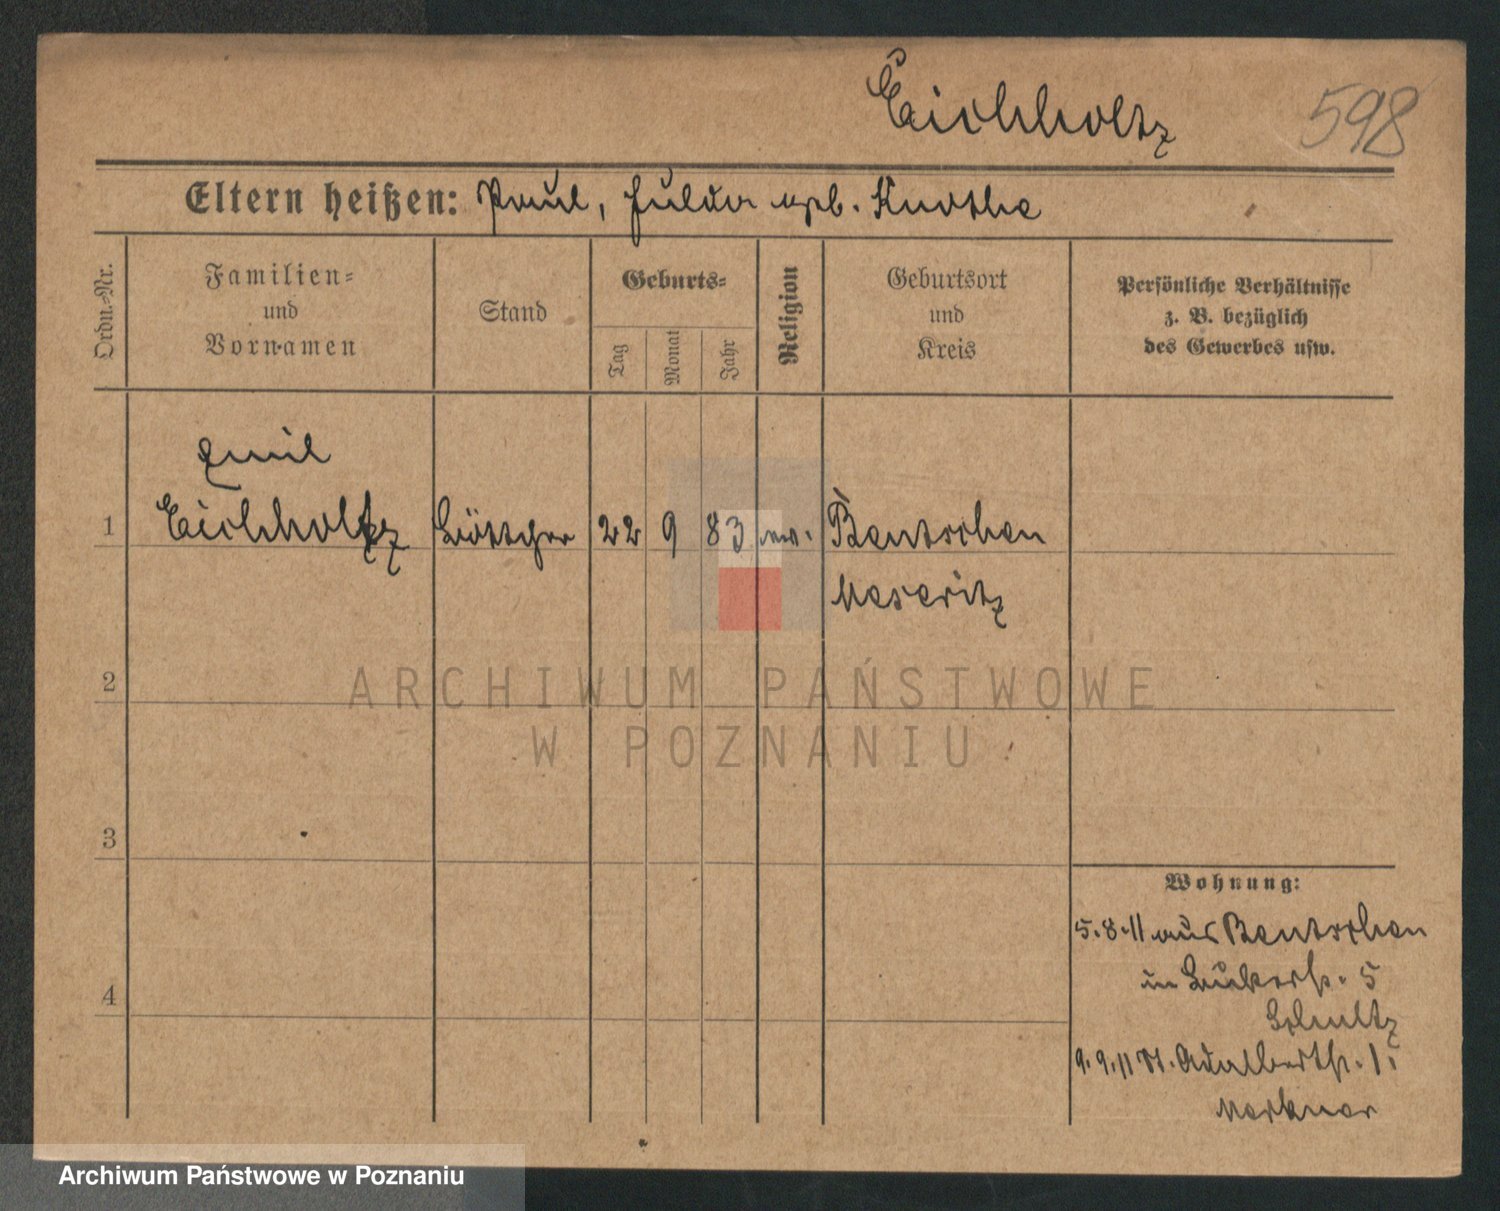 Eichholtz
598
Eltern heißen: Paul, Hulda geb. Knothe
Ordn.-Nr.
Familien-
und
Vornamen
Stand
Geburts-
Tag
Monat
Jahr
Religion
Geburtsort
und
Kreis
Persönliche Verhältnisse
z. B. bezüglich
des Gewerbes usw.
Emil
1 Eichholtz Böttcher 22 9 83 ev. Bentschen
Meseritz
2
ARCHIWUM PAŃSTWOWE
W POZNANIU
3
Wohnung:
5.8.11 aus Bentschen
in 5
4
Schultz
9.9.11 St. Adalbertstr. 1
Archiwum Państwowe w Poznaniu